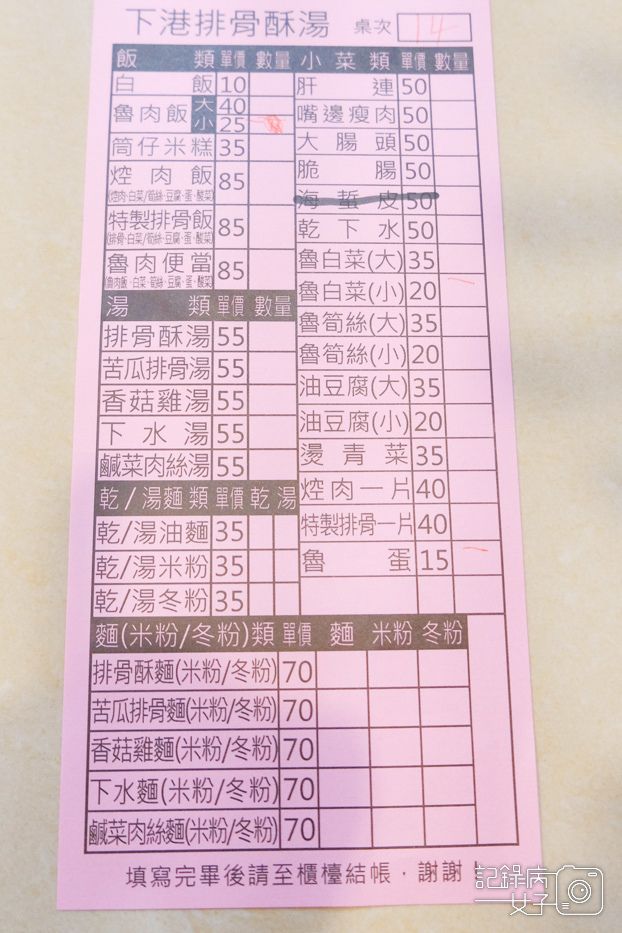 下港排骨酥湯 桌次 14
飯類 單價 數量
白飯 10
魯肉飯 大 40
小 25
筒仔米糕 35
焢肉飯 85
(焢肉·白菜/筍絲·豆腐·蛋·酸菜)
特製排骨飯 85
(排骨·白菜/筍絲·豆腐·蛋·酸菜)
魯肉便當 85
(魯肉飯·白菜·筍絲·豆腐·蛋·酸菜)
湯類 單價 數量
排骨酥湯 55
苦瓜排骨湯 55
香菇雞湯 55
下水湯 55
鹹菜肉絲湯 55
乾/湯麵類 單價 乾 湯
乾/湯油麵 35
乾/湯米粉 35
乾/湯冬粉 35
小菜類 單價 數量
肝連 50
嘴邊瘦肉 50
大腸頭 50
脆腸 50
海蜇皮 50
乾下水 50
魯白菜(大) 35
魯白菜(小) 20
魯筍絲(大) 35
魯筍絲(小) 20
油豆腐(大) 35
油豆腐(小) 20
燙青菜 35
焢肉一片 40
特製排骨一片 40
魯蛋 15
麵(米粉/冬粉)類 單價 麵 米粉 冬粉
排骨酥麵(米粉/冬粉) 70
苦瓜排骨麵(米粉/冬粉) 70
香菇雞麵(米粉/冬粉) 70
下水麵(米粉/冬粉) 70
鹹菜肉絲麵(米粉/冬粉) 70
填寫完畢後請至櫃檯結帳·謝謝!
記錄病
女子